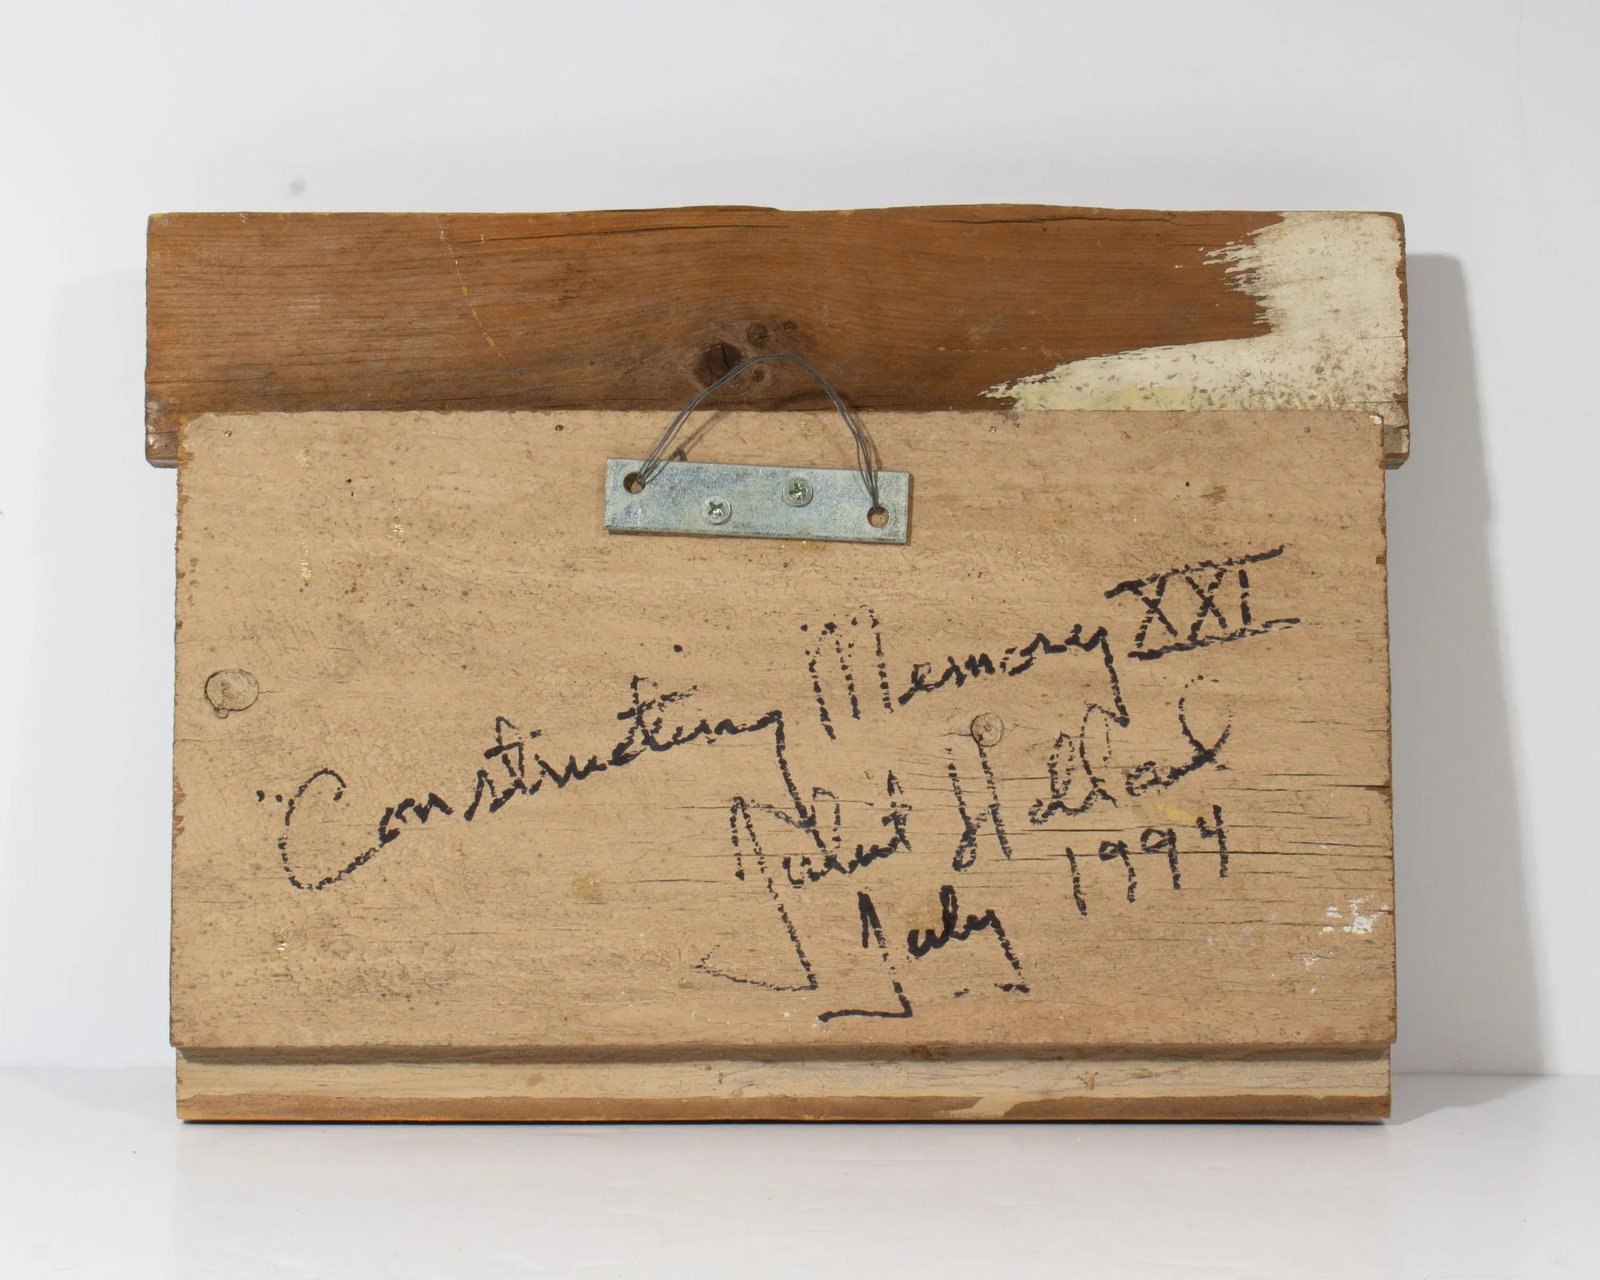 "Constructing Memory XXI
Robert Holland
July 1994